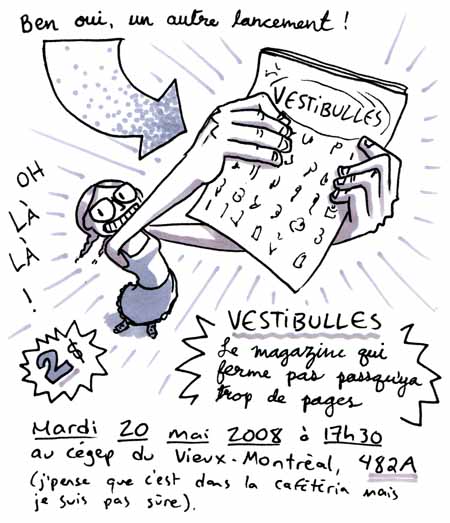 Ben oui, un autre lancement !
VESTIBULLES
OH
LÀ
LÀ
!
2$
VESTIBULLES
Le magazine qui
ferme pas passqu'ya
trop de pages
Mardi 20 mai 2008 à 17h30
au cégep du Vieux-Montréal, 482A
(j'pense que c'est dans la cafétéria mais
je suis pas sûre).